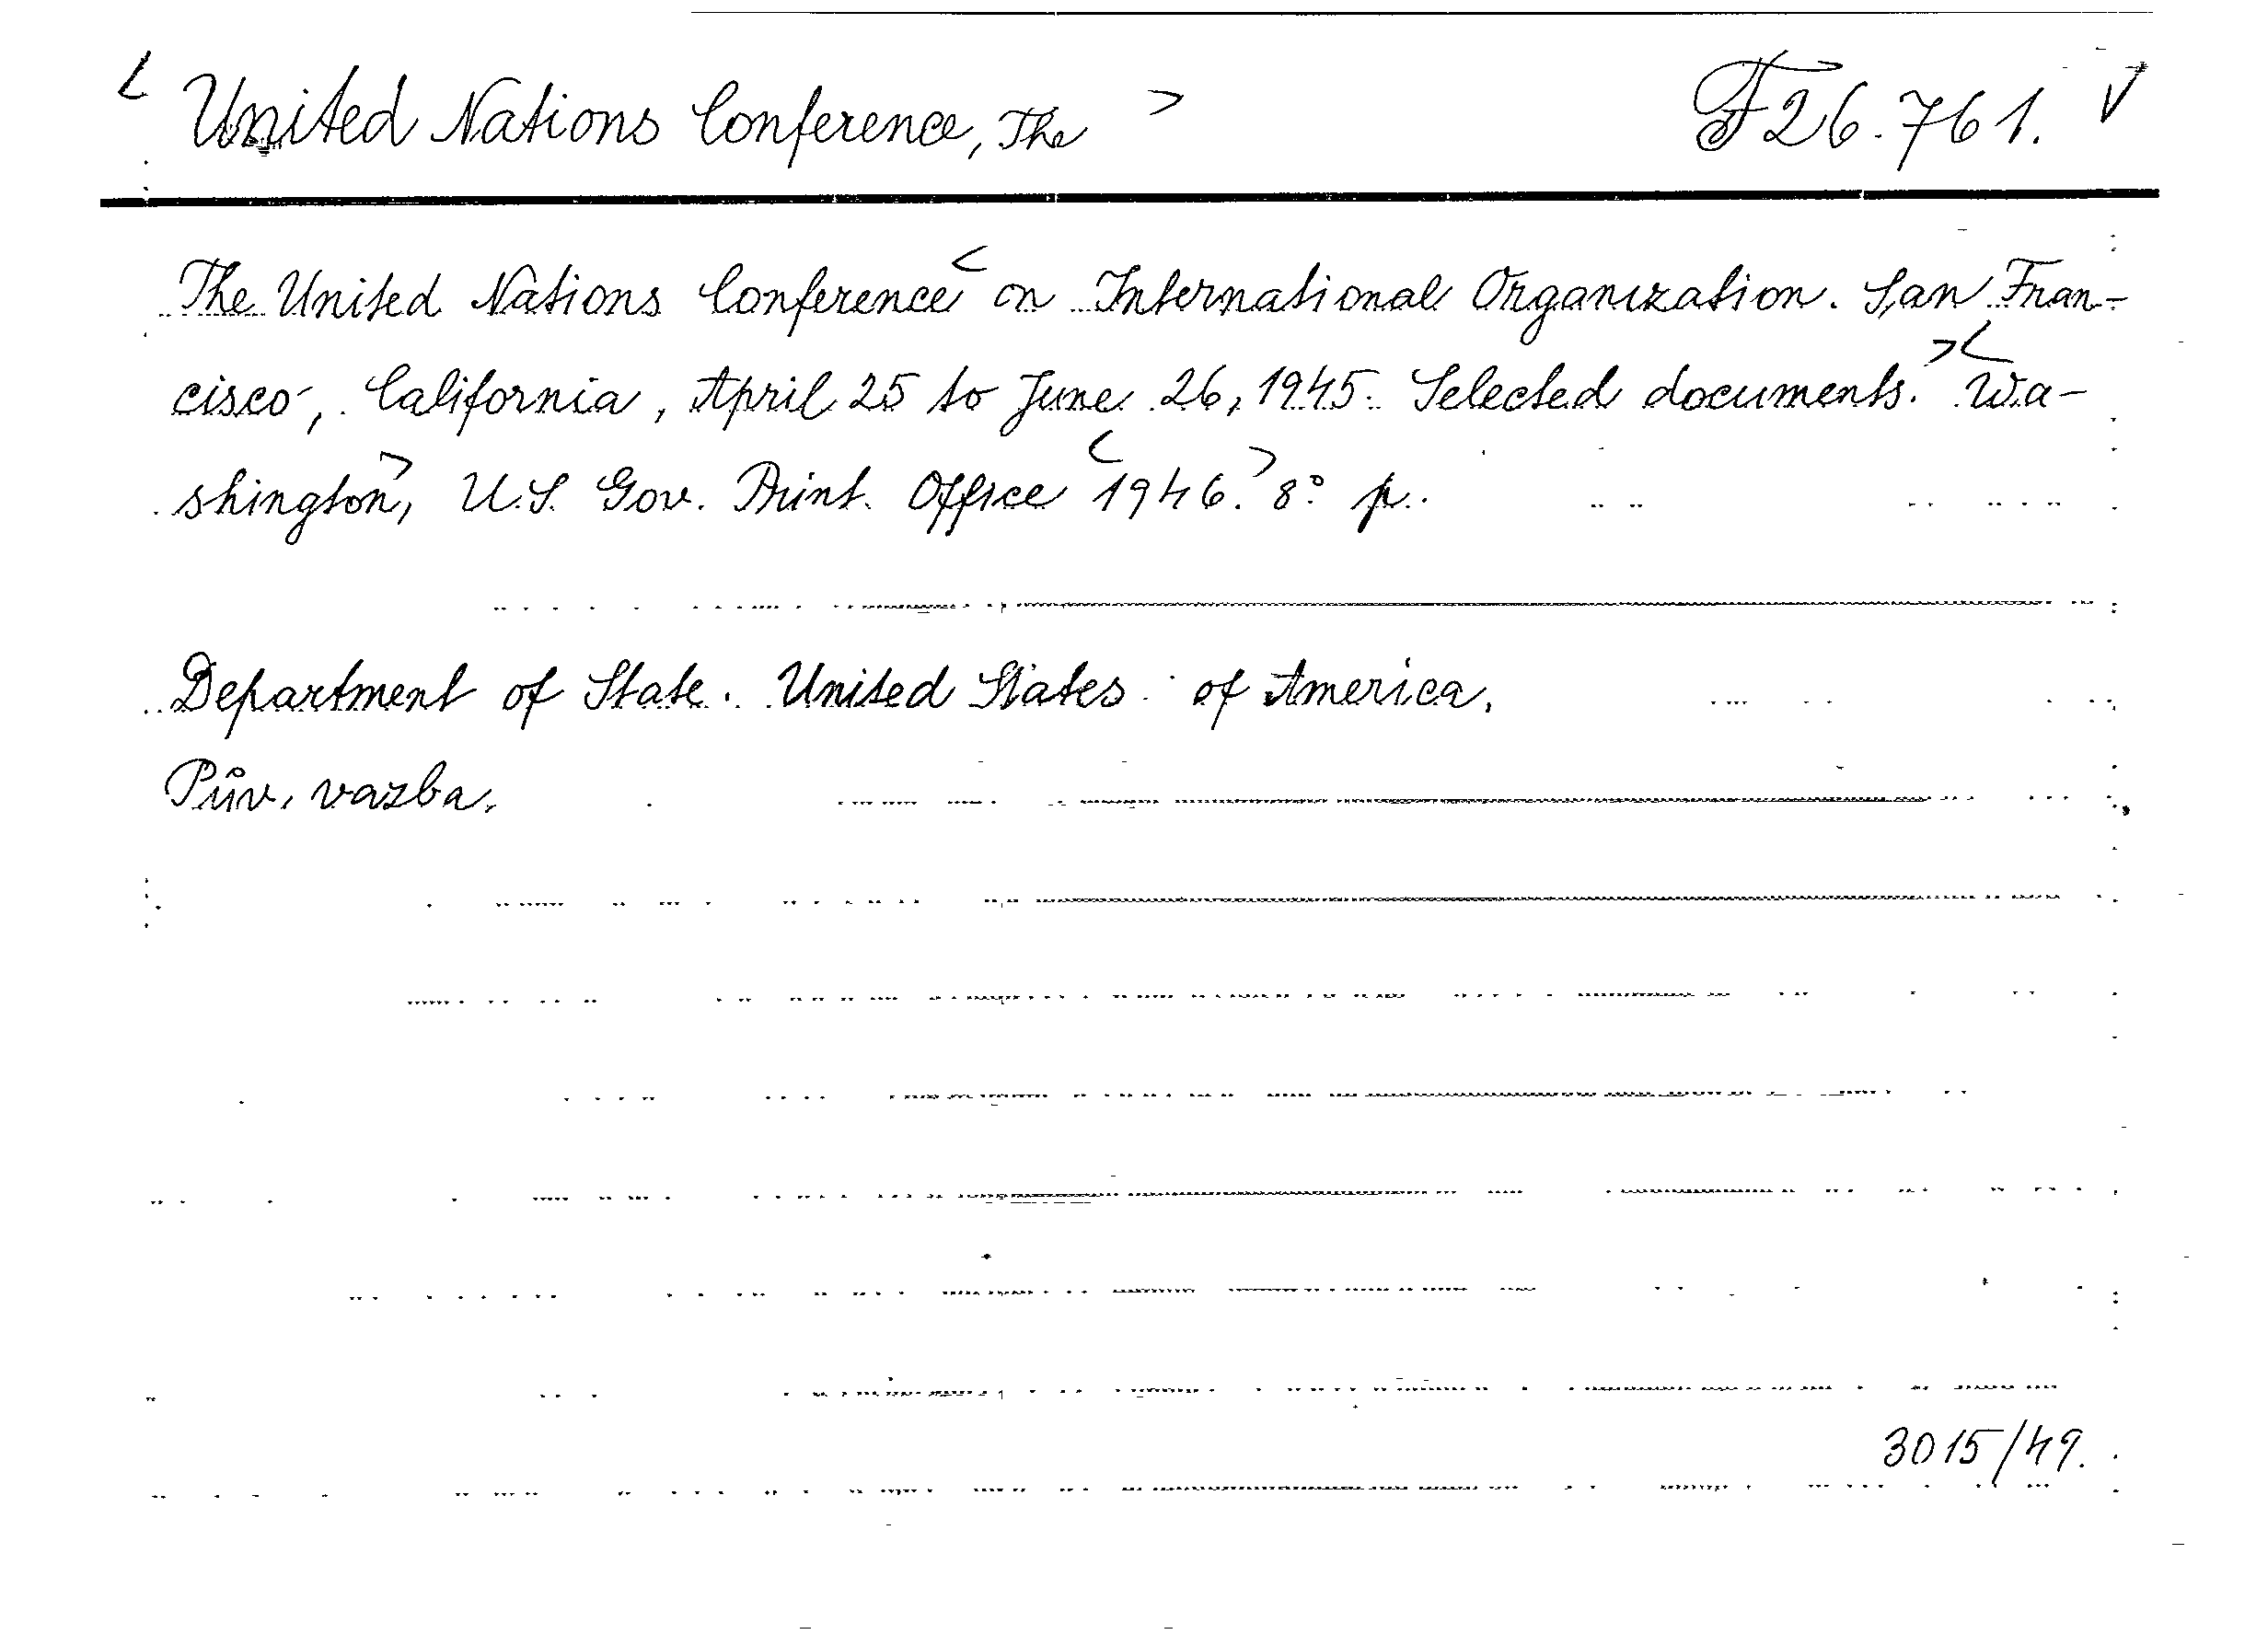 < United Nations Conference, The > F 26.761. V
The United Nations Conference < on International Organization. San Fran-
cisco, California, April 25 to June 26, 1945. Selected documents. >< Wa-
shington >, U.S. Gov. Print. Office < 1946. > 8° p.
Department of State. United States of America.
Pův. vazba.
3015/49.